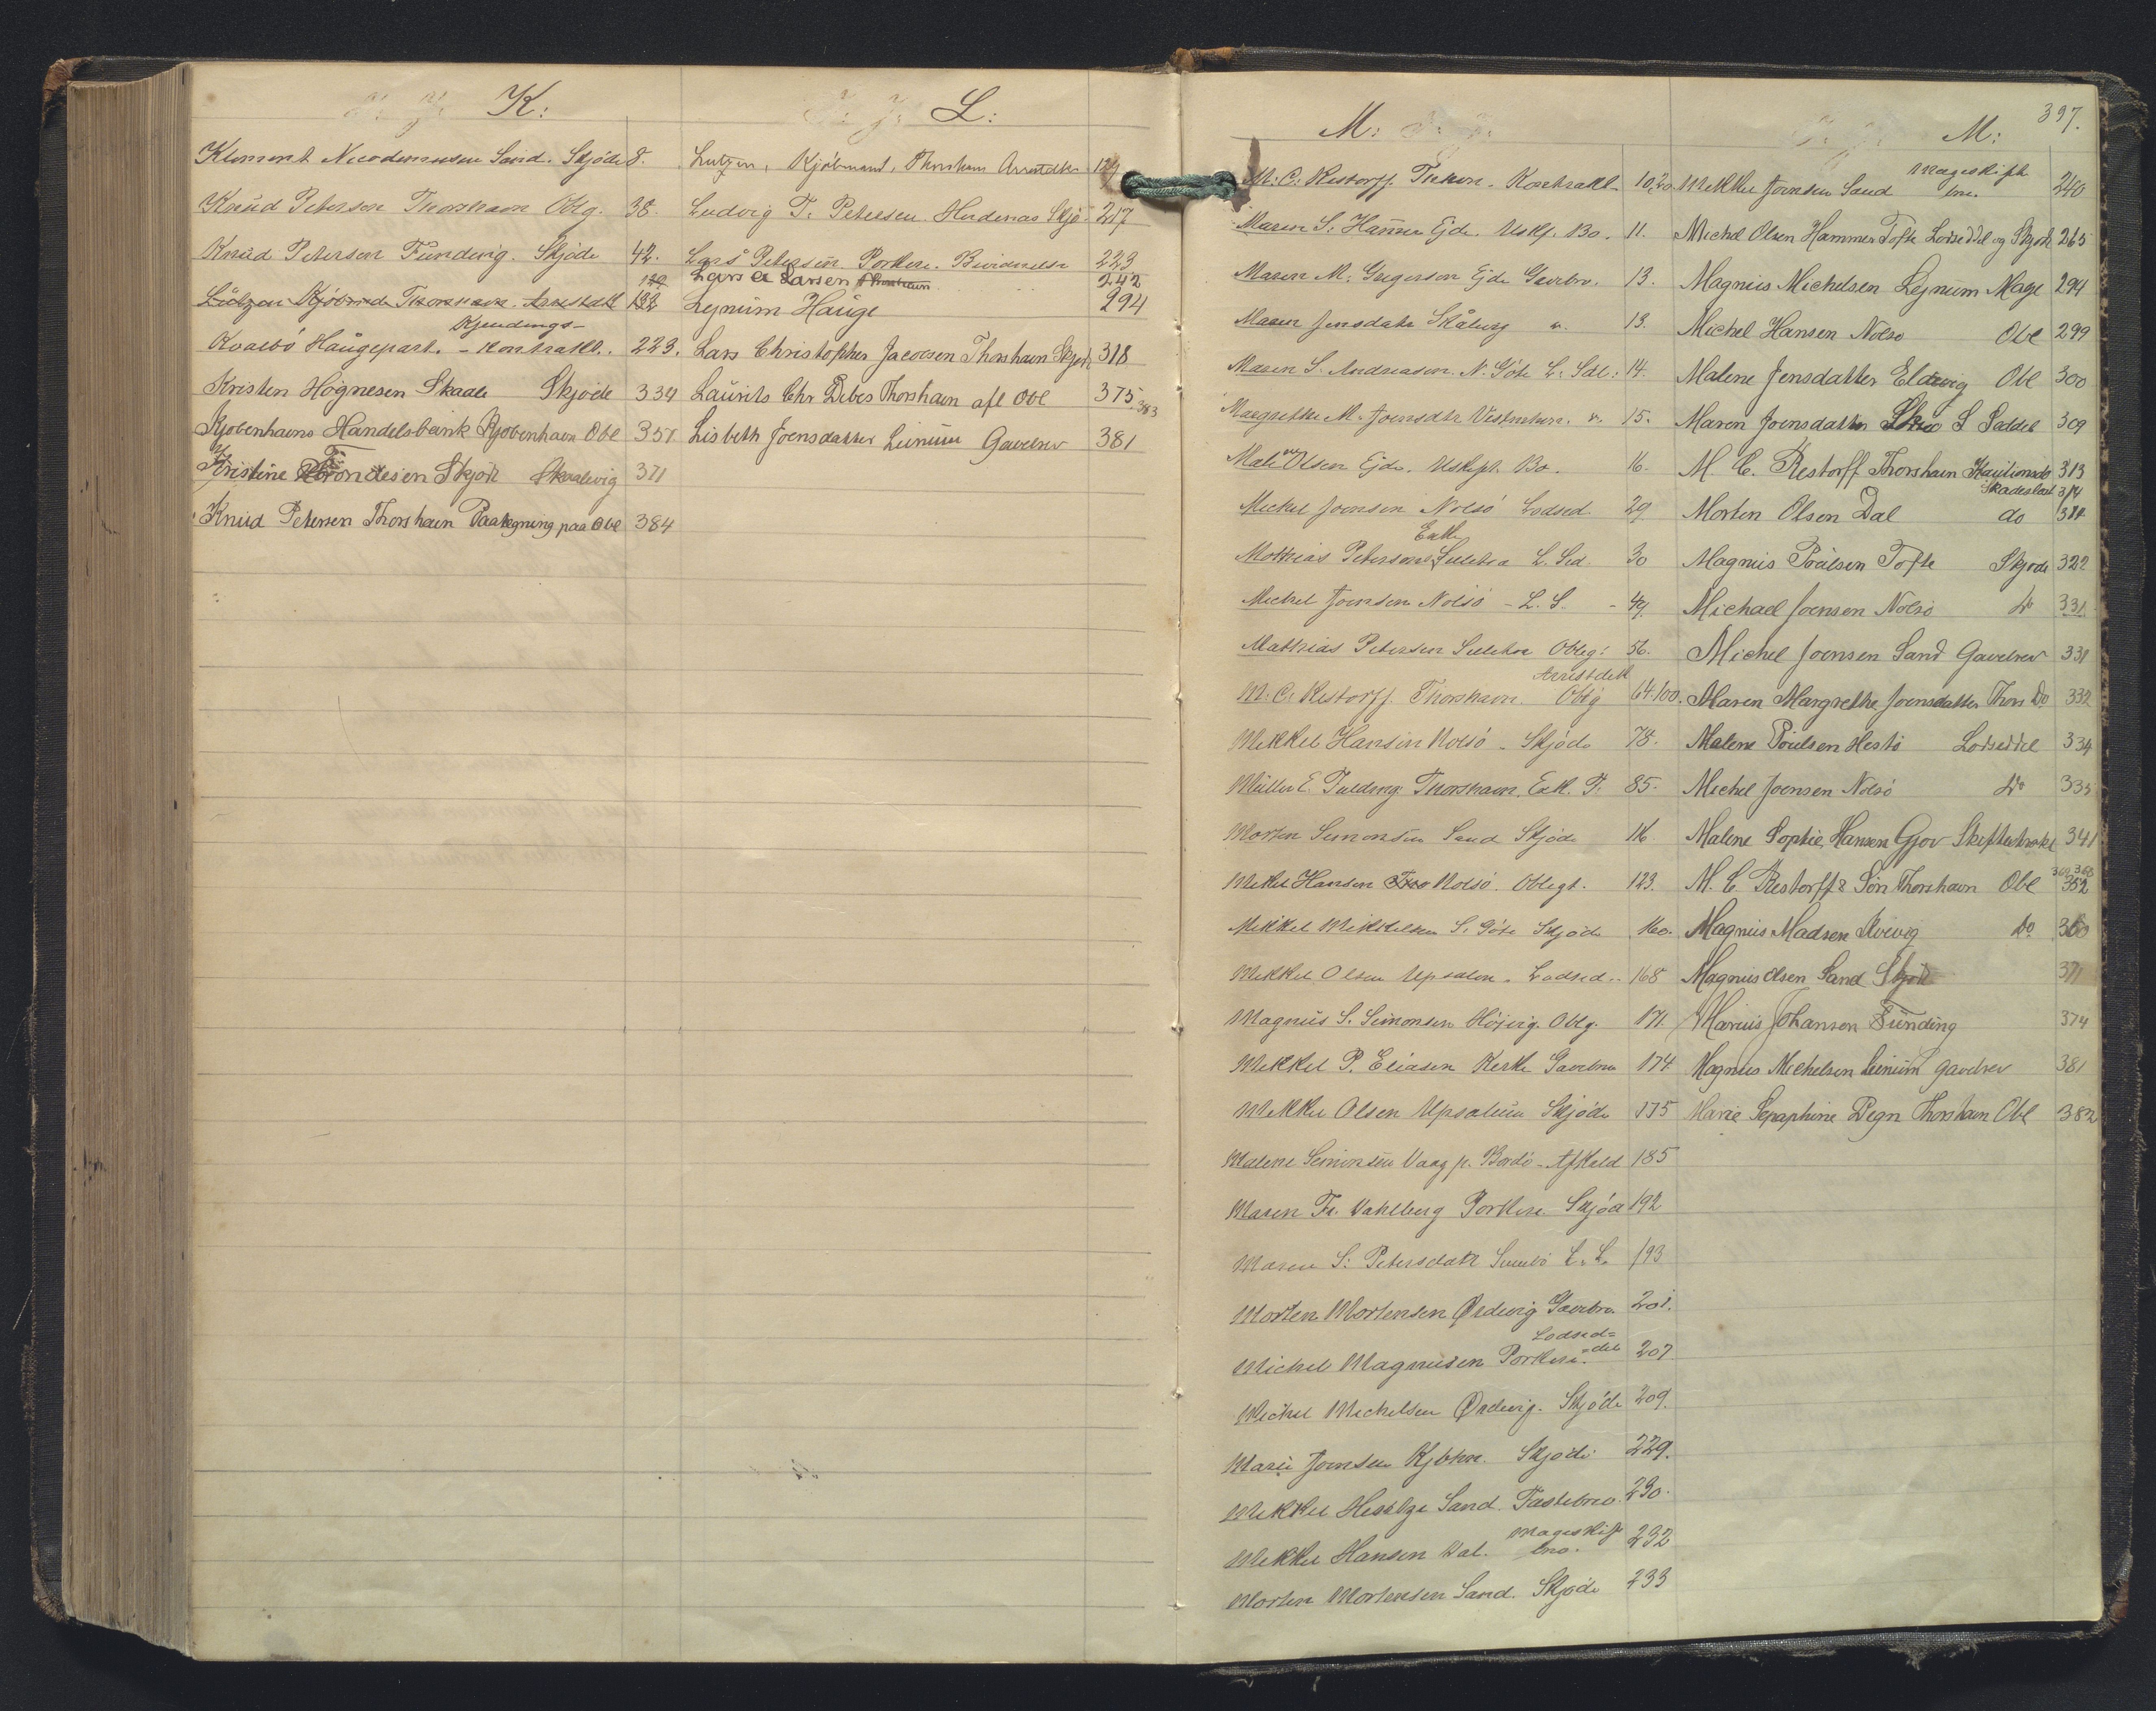 K:
Klement Nicodemusen Sand. Skjöde 8.
Knud Petersen Thorshavn Oblg. 38.
Knud Petersen Funding. Skjöde 42.
Lützen Kjöbmd Thorshavn. Arrestdekl 129 132
Kvalbö Haugepart. - Kjendings-Kontrakt. 223.
Kristen Högnesen Skaale Skjöde 334
Kjobenhavns Handelsbank Kjobenhavn Obl 351
Kristine Trondesen Skjöde Skaalevig 371
Knud Petersen Thorshavn Paategning paa Obl 384
L:
Lutzen, Kjöbmand, Thorshavn Arrestdk. 129
Ludvig T. Petersen Skjö. 217
Lars Petersen Porkere. Bevidnelse 223
Lars a Larsen Thorshavn 242
Lejnum Hauge 294
Lars Christopher Jacobsen Thorshavn Skjode 318
Laurits Chr Debes Thorshavn afl Obl 375 383
Lisbeth Joensdatter Leinum Gavebrev 381
397.
M:
M. C. Restorff. Kontrakt. 10,20
Maren S. Hansen Ejde. Uskf. Bo. 11.
Maren M. Gregersen Ejde Gavebro. 13.
Maren Jensdatr Skålevig 13.
Maren S. Andreasen. N. Göte L. Sdl: 14.
Margrethe M. Joensdtr Vestmhvn. 15.
Olsen Ejde. Uskft. Bo. 16.
Mickel Joensen Nolsö Lodsed. 29
Mathias Petersens Enke Selletra L. Sed. 30
Michel Joensen Nolsö - L. S. - 49.
Mathias Petersen Selletra Oblg: 56.
M. C. Restorff. Thorshavn. Oblg Arrestdekl 64.100.
Mikkel Hansen Nolsö - Skjöde 78.
Müller E. Thorshavn. Eks. F. 85.
Morten Simonsen Sand Skjöde 116.
Mikkel Hansen Nolsö. Obligt. 123.
Mikkel Mikkelsen S. Göte Skjöde 160.
Mikkel Olsen Upsalen. Lodsed.. 168
Magnus S. Simonsen Höjvig. Oblg. 171.
Mikkel P. Eliasen Gavebrev 174
Mikkel Olsen Upsalum Skjöde 175
Malene Simonsen Vaag p. Bordö - Afkald 185
Maren Fr. Vahlberg Porkere Skjöd 192
Maren S. Petersdatr Sumbö L. S. 193
Morten Mortensen Ördevig Gavebro. 201.
Michel Magnusen Porkere. Lodsed=del 207
Michel Michelsen Ördevig. Skjöde 209.
Marie Joensen Kjbhvn. Skjöde 229.
Mikkel Sand. Fæstebrev. 230.
Mikkel Hansen Dal. Mageskift brv. 232
Morten Mortensen Sand. Skjöde 233
M:
Mikkel Joensen Sand Mageskifte brev. 240
Michel Olsen Hammer Tofte Lodseddel og Skjode 265
Magnus Michelsen Lejnum Mage 294
Michel Hansen Nolsö Obl 299
Malene Jensdatter Eldevig Obl 300
Maren Joensdatter L Seddel 309
M. C. Restorff Thorshavn Kautionsdo 313
Skadeslost 314
Morten Olsen Dal do 314
Magnus Poulsen Tofte Skjode 322
Michael Joensen Nolsö Do 331
Michel Joensen Sand Gavebrev 331
Maren Margrethe Joensdatter Thorsh Do 332
Malene Poulsen Hestö Lodseddel 334
Michel Joensen Nolsö Do 335
Malene Sophie Hansen Gjov Skifteextrakt 341
M. C. Restorff & Sön Thorshavn Obl 352 362 363
Magnus Madsen Kvivig Do 360
Magnus Olsen Sand Skjöde 371
Marius Johansen Funding 374
Magnus Michelsen Leinum Gavebrev 381
Marie Seraphine Degn Thorshavn Obl 382